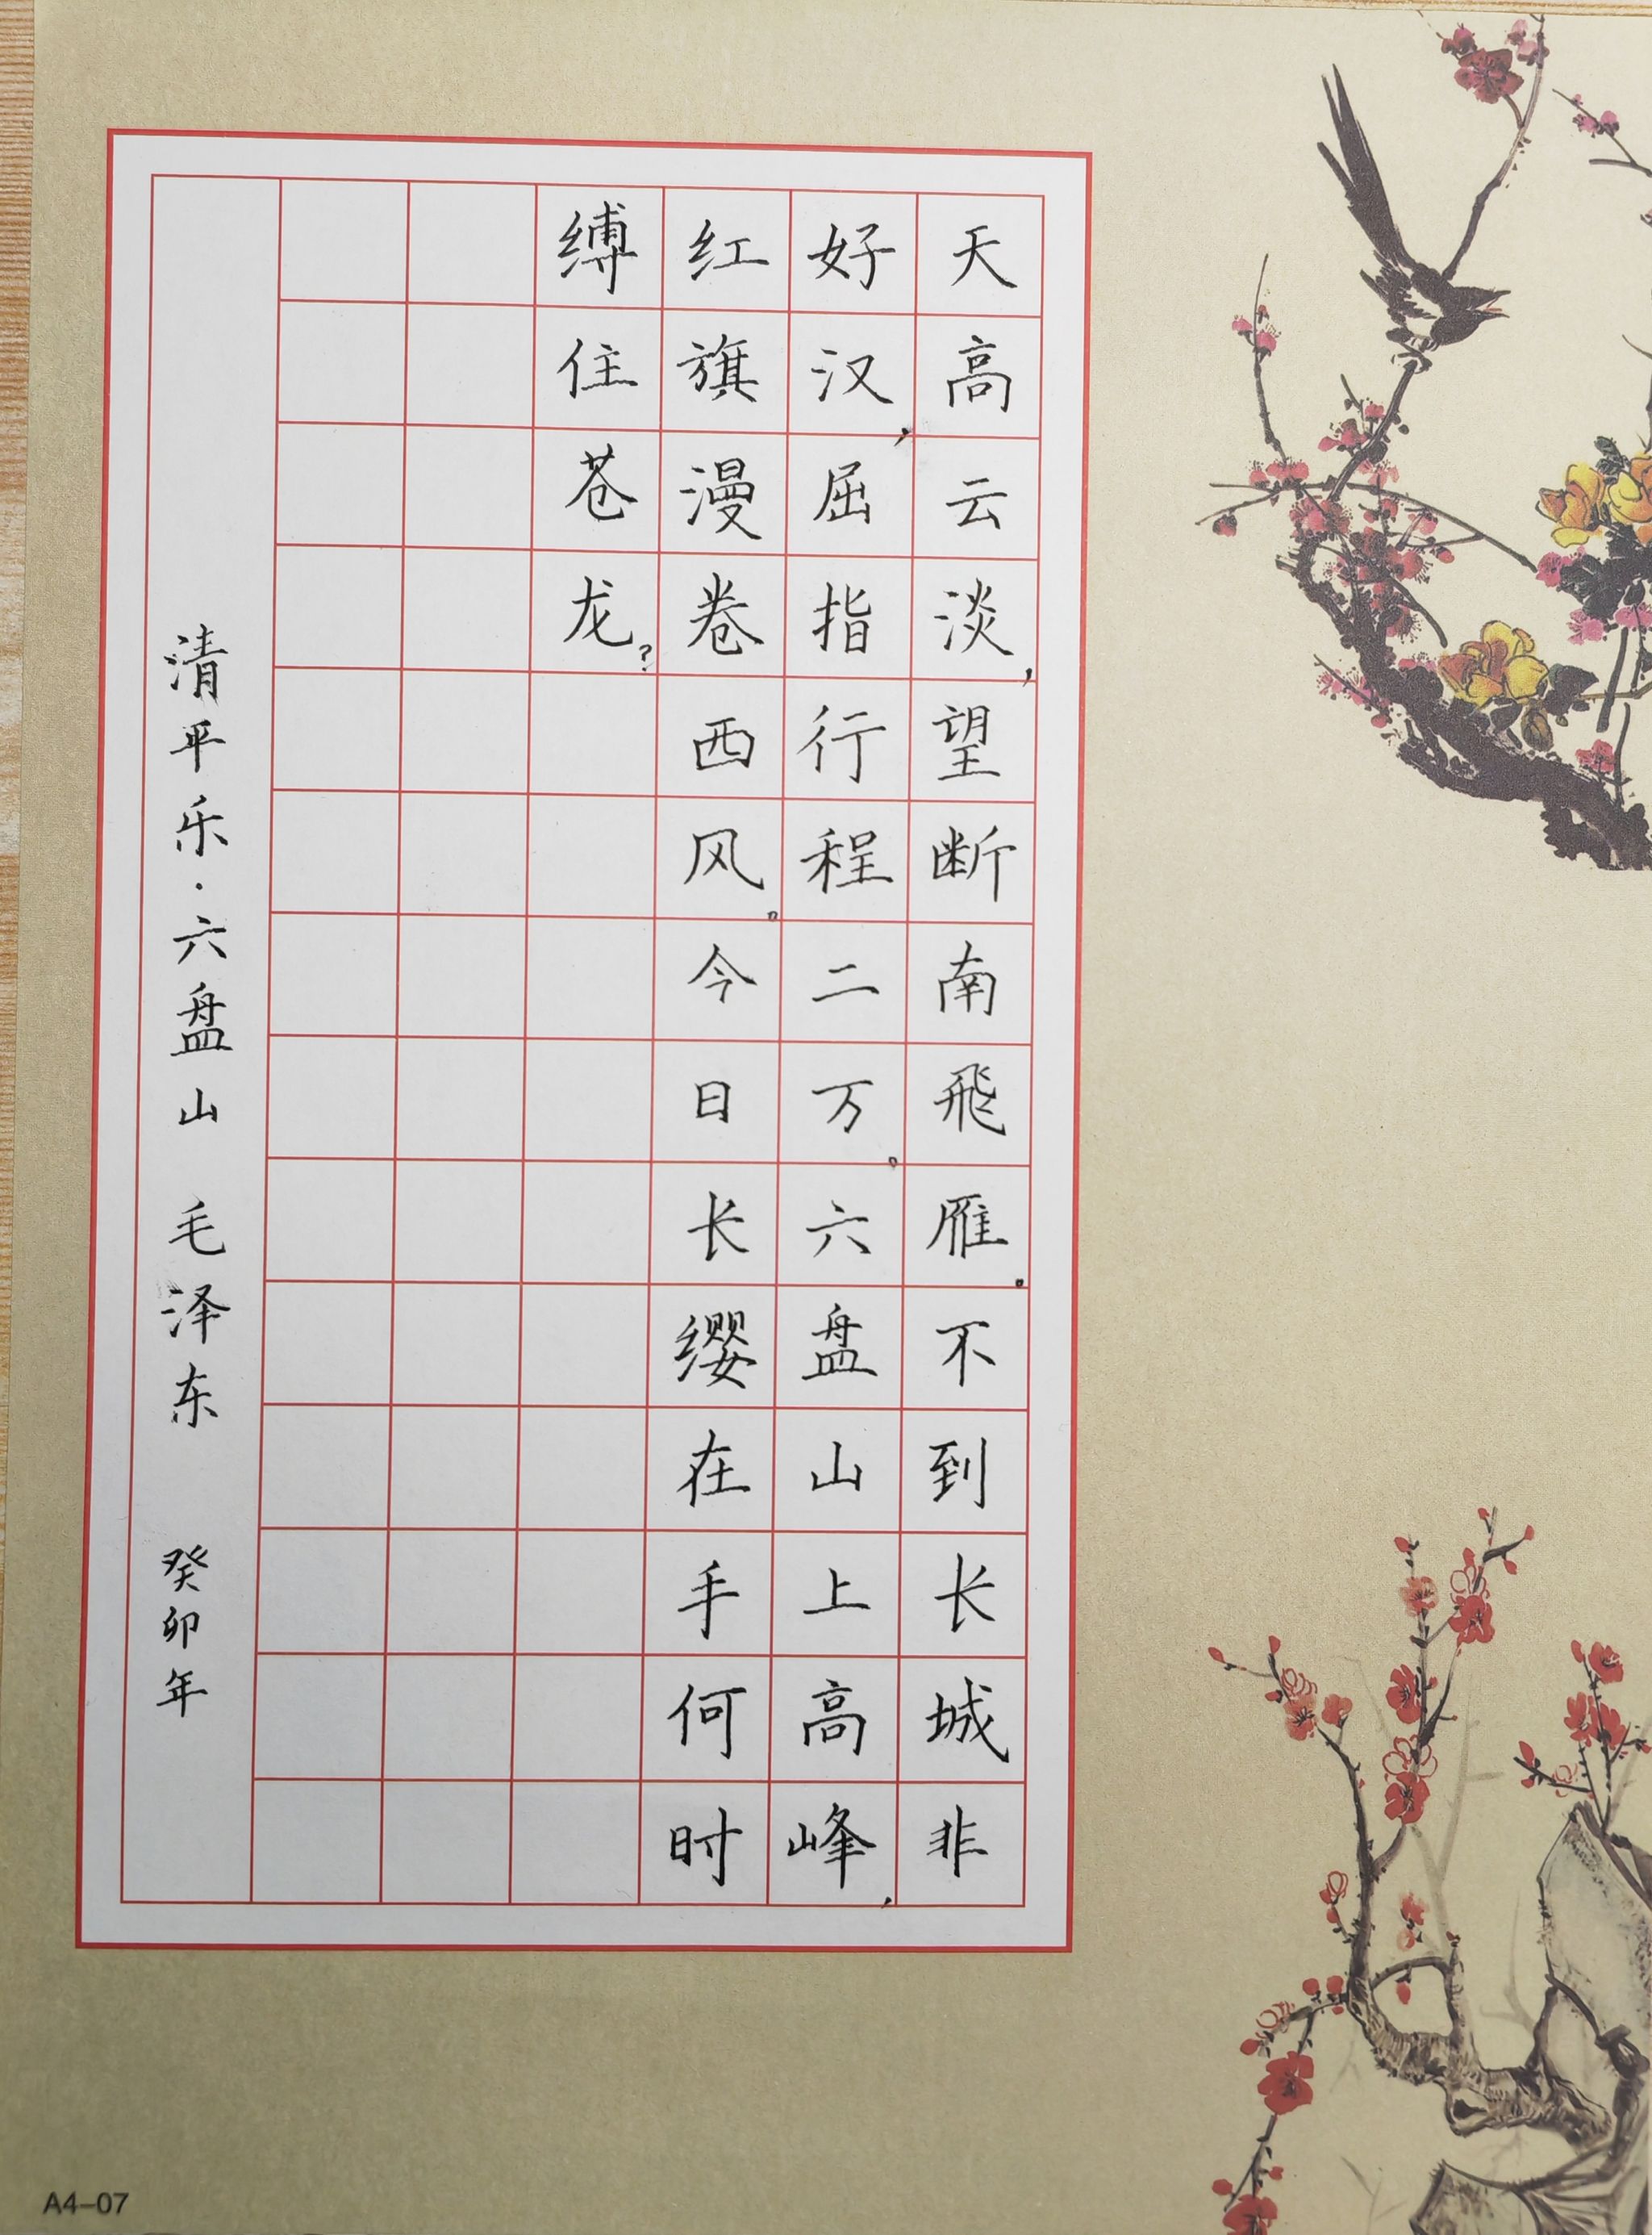 天高云淡，望断南飛雁。不到长城非
好汉，屈指行程二万。六盘山上高峰，
红旗漫卷西风。今日长缨在手何时
缚住苍龙？
清平乐·六盘山 毛泽东 癸卯年
A4-07